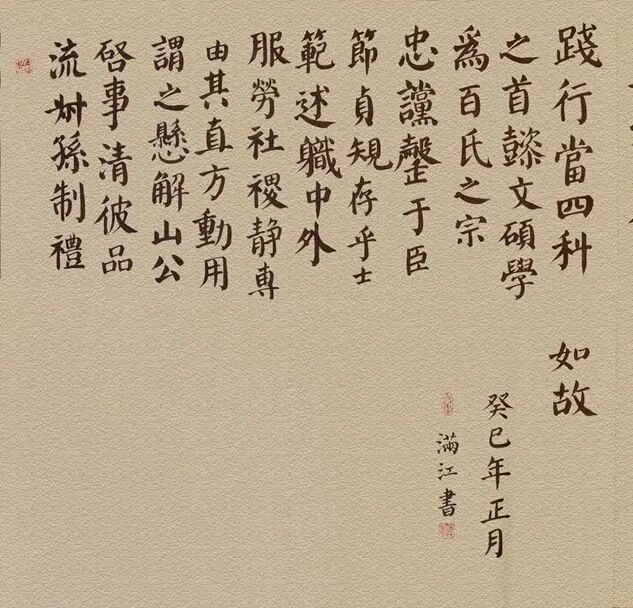 踐行當四科
之首懿文碩學
爲百氏之宗
忠讜罄于臣
節貞規存乎士
範述職中外
服勞社稷靜專
由其直方動用
謂之懸解山公
啓事清彼品
流叔孫制禮
如故
癸巳年正月
滿江書